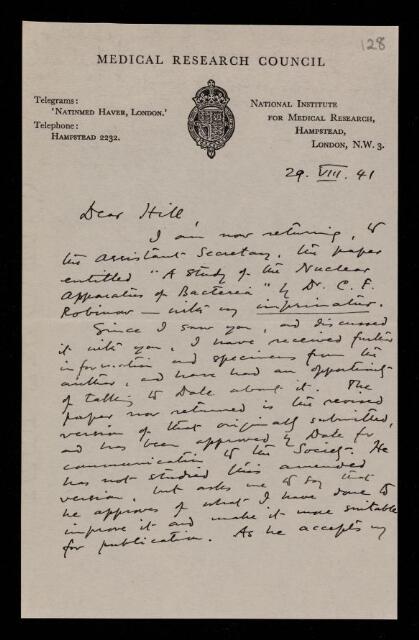 128
MEDICAL RESEARCH COUNCIL
Telegrams:
'NATINMED HAVER, LONDON.'
Telephone:
HAMPSTEAD 2232.
NATIONAL INSTITUTE
FOR MEDICAL RESEARCH,
HAMPSTEAD,
LONDON, N.W. 3.
29. VIII. 41
Dear Hill
I am now returning, to
the Assistant Secretary, the paper
entitled "A Study of the Nuclear
Apparatus of Bacteria" by Dr. C. F.
Robinow — with my imprimatur.
Since I saw you, and discussed
it with you, I have received further
information and specimens from the
author, and have had an opportunity
of talking to Dale about it. The
paper now returned is the revised
version of that originally submitted,
and has been approved by Dale for
communication to the Society. He
has not studied this amended
version, but asks me to say that
he approves of what I have done to
improve it and make it more suitable
for publication. As he accepts my